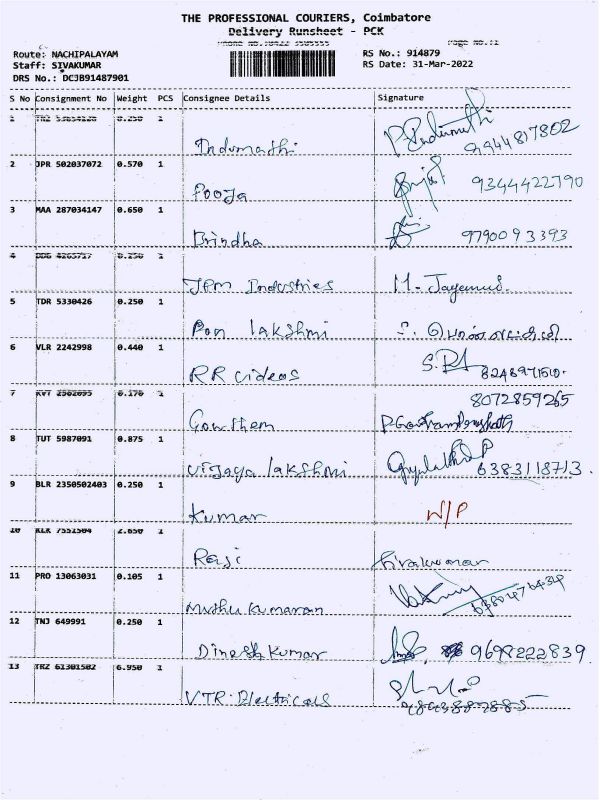 THE PROFESSIONAL COURIERS, Coimbatore
Delivery Runsheet - PCK
Page No.:1
Route: NACHIPALAYAM
RS No.: 914879
Staff: SIVAKUMAR
RS Date: 31-Mar-2022
DRS No.: DCJB91487901
S No Consignment No Weight PCS Consignee Details Signature
1 TRZ 0.250 1
Indumathi 9944817802
2 JPR 502037072 0.570 1
Pooja 9344422790
3 MAA 287034147 0.650 1
Brindha 9790093393
4 0.250 1
JPM Industries M. Jayamus.
5 TDR 5330426 0.250 1
Pon lakshmi
6 VLR 2242998 0.440 1
RR videos 8248971510.
7 0.170 1 8072859265
Gowthem
8 TUT 5987091 0.875 1
Vijaya lakshmi 6383118713.
9 BLR 2350502403 0.250 1
Kumar W/P
10 KLK 7551504 2.650 1
Raji Sivakumar
11 PRO 13063031 0.105 1
Muthu Kumaran
12 TNJ 649991 0.250 1
Dinesh Kumar 9698222839.
13 TRZ 61301502 6.950 1
VTR. Electricals